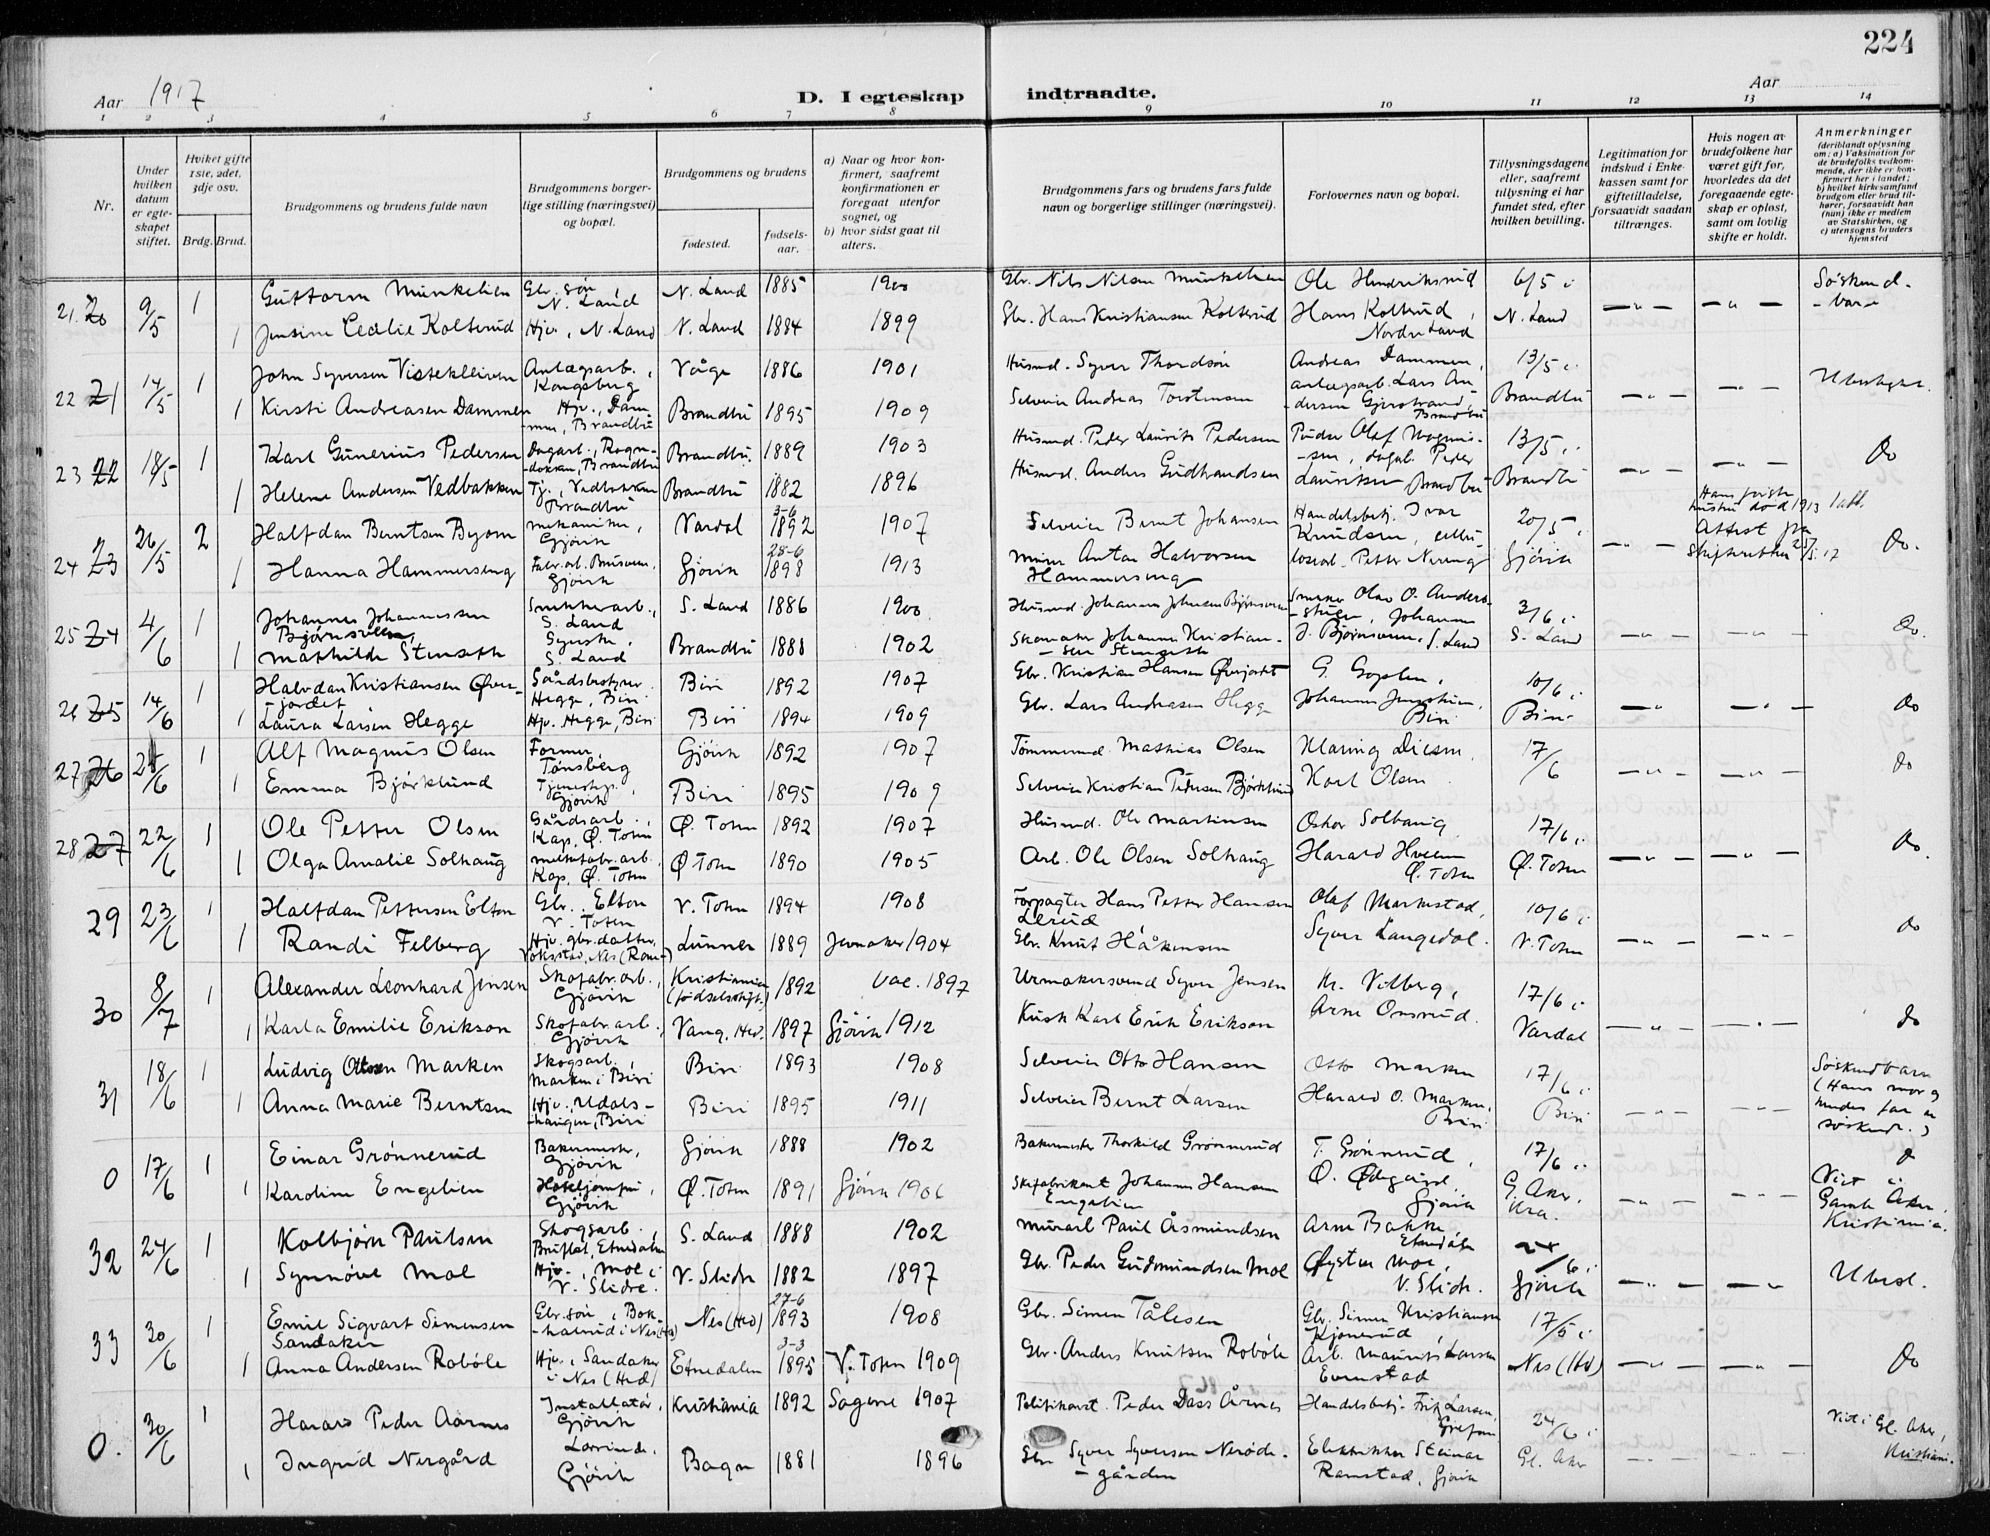 224
Aar 1917
D. I egteskap indtraadte.
Aar
1 2 3 4 5 6 7 8 9 10 11 12 13 14
Nr.
Under hvilken datum er egteskapet stiftet.
Hviket gifte 1ste, 2det, 3dje osv.
Brdg. Brud.
Brudgommens og brudens fulde navn
Brudgommens borgerlige stilling (næringsvei) og bopæl.
Brudgommens og brudens
fødested.
fødselsaar.
a) Naar og hvor konfirmert, saafremt konfirmationen er foregaat utenfor sognet, og
b) hvor sidst gaat til alters.
Brudgommens fars og brudens fars fulde navn og borgerlige stillinger (næringsvei).
Forlovernes navn og bopæl.
Tillysningsdagene eller, saafremt tillysning ei har fundet sted, efter hvilken bevilling.
Legitimation for indskud i Enkekassen samt for giftetilladelse, forsaavidt saadan tiltrænges.
Hvis nogen av brudefolkene har været gift før, hvorledes da det foregaaende egteskap er opløst, samt om lovlig skifte er holdt.
Anmerkninger (deriblandt oplysning om: a) Vaksination for de brudefolks vedkommende, der ikke er konfirmert her i landet; b) hvilket kirkesamfund brudgom eller brud tilhører, forsaavidt han (hun) ikke er medlem av Statskirken, og c) utensogns bruders hjemsted
21 20 9/5 1 Guttorm Munkelien Gbr. søn N. Land N. Land 1885 1900 Gbr. Nils Nilsen Munkelien Ole Hendriksrud 6/5 i Søskend-
1 Jensine Cecilie Kolterud Hjv., N. Land N. Land 1884 1899 Gbr. Hans Kristiansen Kolterud Hans Kolterud, Nordre Land N. Land —"— —"— -barn
22 21 14/5 1 John Syversen Vistekleiven Anlægsarb., Kongsberg Våge 1886 1901 Husmd. Syver Thordsøn Andreas Dammen, 13/5 i
1 Kirsti Andreasen Dammen Hjv., Dammen, Brandbu Brandbu 1895 1909 Selveier Andreas Torstensen anlægsarb. Lars Andersen Gjerstrand, Brandbu Brandbu —"— —"— Ubeslegt.
23 22 18/5 1 Karl Gunerius Pedersen Dagarb., Rognstokken, Brandbu Brandbu 1889 1903 Husmd. Peder Laurits Pedersen Pudser Olaf Magnussen, dagarb. Peder 13/5 i
1 Helene Andersen Vedbakken Tj., Vedbakken Brandbu Brandbu 1882 1896 Husmd. Anders Gudbrandsen Lauritsen Brandbu Brandbu —"— —"— Do
24 23 26/5 2 Halfdan Berntsen Byom mekaniker, Gjøvik Vardal 3-6 1892 1907 Selveier Bernt Johansen Handelsbetj. Ivar Knudsen, 20/5 i Hans første hustru død 1913 Attest fra Skifteretten 25/5 17
1 Hanna Hammerseng Fabr.arb. Gjøvik Gjøvik 25-6 1898 1913 Murer Anton Halvorsen Hammerseng Petter Nereng Gjøvik —"— Do.
25 24 4/6 1 Johannes Johannessen Bjørnsveen Snekkerarb., S. Land S. Land 1886 1900 Husmd. Johannes Johnsen Bjørnsveen Snekker Olav O. Andersstuen, Johannes 3/6 i
1 Mathilde Stenseth Syerske, S. Land Brandbu 1888 1902 Skomaker Johannes Kristiansen Stenseth J. Bjørnsveen, S. Land S. Land —"— —"— Do.
26 25 14/6 1 Halvdan Kristiansen Øverjordet Gårdsbestyrer Hegge, Biri Biri 1892 1907 Gbr. Kristian Hansen Øverjordet G. Goplen, 10/6 i
1 Laura Larsen Hegge Hjv. Hegge, Biri Biri 1894 1909 Gbr. Lars Andreasen Hegge Johannes Biri Biri —"— —"— Do
27 26 21/6 1 Alf Magnus Olsen Former, Tønsberg Gjøvik 1892 1907 Tømmermd. Mathias Olsen 17/6
1 Emma Bjørklund Tjenestep., Gjøvik Biri 1895 1909 Selveier Kristian Petersen Bjørklund Karl Olsen —"— —"— Do
28 27 22/6 1 Ole Petter Olsen Gårdsarb., Kap, Ø. Toten Ø. Toten 1892 1907 Husmd. Ole Martinsen Oskar Solhaug 17/6 i
1 Olga Amalie Solhaug melkefabr.arb. Kap, Ø. Toten Ø Toten 1890 1905 Arb. Ole Olsen Solhaug Harald Hveem Ø. Toten Ø. Toten —"— —"— Do.
29 23/6 1 Halfdan Pettersen Elton Gbr., Elton V. Toten V. Toten 1894 1908 Forpagter Hans Petter Hansen Lerud Olaf Markestad, 10/6 i
1 Randi Felberg Hjv. gbr.datter, Nes (Rom.) Lunner 1889 Jevnaker 1904 Gbr. Knut Håkensen Syver Langedal. V. Toten —"— —"— Do
30 8/7 1 Alexander Leonhard Jensen Skofabr.arb., Gjøvik Kristiania (fødselsstift.) 1892 Vac. 1897 Urmakersvend Syver Jensen Kr. Vilberg, 17/6 i
1 Karla Emilie Erikson Skofabr.arb., Gjøvik Vang, Hed. 1897 Gjøvik 1912 Kusk Karl Erik Erikson Arne Onsrud. Vardal —"— —"— Do
31 18/6 1 Ludvig Ottosen Marken Skogsarb., Marken i Biri Biri 1893 1908 Selveier Otto Hansen Otto Marken 17/6 i Søskendbarn
1 Anna Marie Berntsen Hjv., Udals-haugen, Biri Biri 1895 1911 Selveier Bernt Larsen Harald O. Marken, Biri Biri —"— —"— (Hans mor og hendes far er søskend.)
0 17/6 1 Einar Grønnerud Bakermester, Gjøvik Gjøvik 1888 1902 Bakermester Thorkild Grønnerud T. Grønnerud, 17/6 i
1 Karoline Engelien Hoteljomfru, Gjøvik Ø. Toten 1891 Gjøvik 1906 Skifabrikant Johannes Hansen Engelien O. Ødegård, Gjøvik G. Aker. Kra. —"— —"— Viet i Gamle Aker, Kristiania.
32 24/6 1 Kolbjørn Paulsen Skogsarb. Bruflat, Etnedalen S. Land 1888 1902 Murarb Paul Åsmundsen Arne Bakke, Etnedalen 24/6 i
1 Synnøve Moe Hjv., Moe i V. Slidre. V. Slidre 1882 1897 Gbr. Peder Gudmundsen Moe Øystein Moe, V. Slidre. Gjøvik —"— —"— Ubesl.
33 30/6 1 Emil Sigvart Simensen Sandaker Gbr.søn, i Nes (Hed) Nes (Hed) 27-6 1893 1908 Gbr. Simen Tålesen Gbr. Simen Kristiansen Kjønerud, 17/5 i
1 Anna Andersen Robøle Hjv., Sandaker i Nes (Hed) Etnedalen 3-3 1895 V. Toten 1909 Gbr. Anders Knutsen Robøle Arb. Maurits Larsen Evenstad Nes (Hd) —"— —"— Do
0. 30/6 1 Harald Peder Aarnes Installatør, Gjøvik Kristiania 1892 Sagene 1907 Politikonst. Peder Dass Årnes Handelsbetj. Fritz Larsen, Grefsen 24/6 i Viet i Gl. Aker,
1 Ingrid Nergård Lærerinde, Gjøvik Bagn 1881 1896 Gbr Syver Syversen Nerødegården Elektriker Steinar Ramstad, Gjøvik Gl. Aker —"— —"— Kristiania.